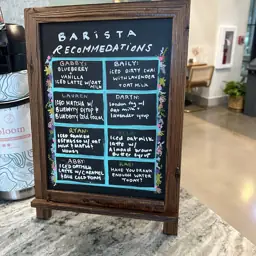 BARISTA
RECOMMEDATIONS
GABBY:
BLUEBERRY +
VANILLA
ICED LATTE W/OAT
MILK
BAILY:
ICED DIRTY CHAI
WITH LAVENDER
+ OAT MILK
LAUREN
ICED MATCHA W/
BLUEBERRY SYRUP +
BLUEBERRY COLD FOAM
DARYN:
London fog w/
oat milk +
lavender syrup
RYAN:
ICED
ESPRESSO W/ OAT
MILK
HONEY
iced oat milk
latte w/
Almond brown
Butter syrup
ABBY:
ICED OATMILK
LATTE W/ CARAMEL
COLD FOAM
HAVE YOU DRANK
ENOUGH WATER
TODAY?
loom